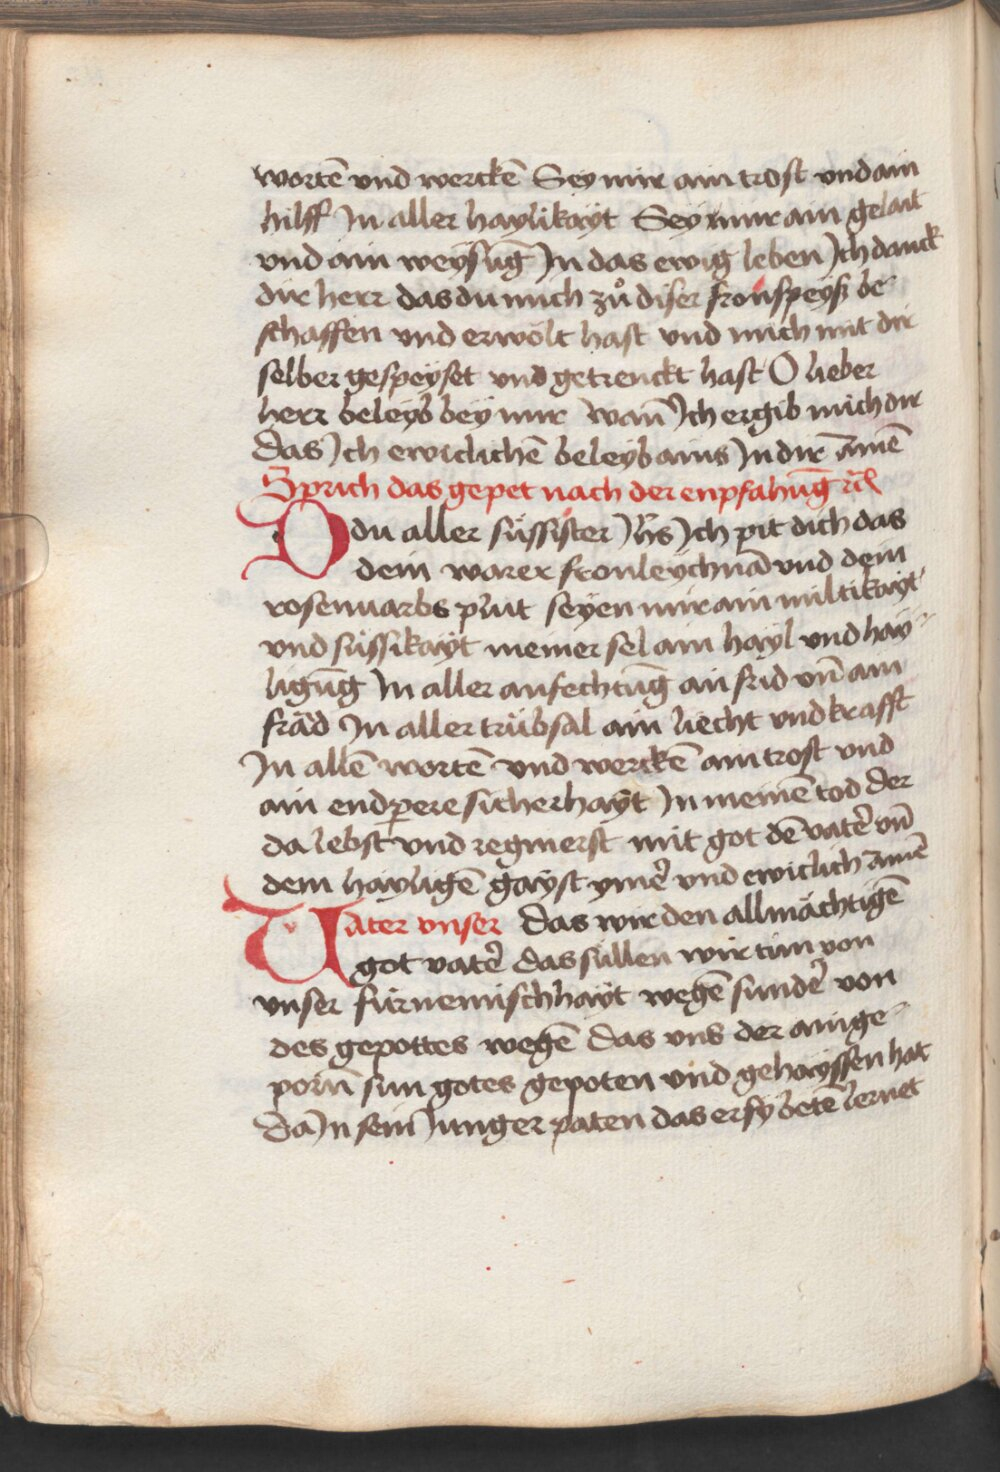 wortē vnd werckē Sey mir ain trost vnd ain
hilff Jn aller haylikayt Sey mir ain gelait
vnd ain weysūg Jn das ewig leben Jch danck
dir herr das du mich zů diser fronspeyß be
schaffen vnd erwölt hast vnd mich mit dir
selber gespeyset vnd getrenckt hast O lieber
herr beleyb bey mir wan̄ Jch ergib mich dir
das Jch ewiclichē beleyb ains Jn dir Amē
Sprich das gepet nach der enpfahūg
O du aller süssister Jh̄s Jch pit dich das
dein warer fronleychnā vnd dein
rosenuarbs plut seyen mir ain miltikayt
vnd süssikayt meiner sel ain hayl vnd hay
ligūg Jn aller anfechtūg ain frid vn̄ ain
fräd Jn aller trübsal ain liecht vnd krafft
Jn allē wortē vnd werckē ain trost vnd
ain endpere sicherhayt Jn meinē tod der
da lebst vnd regnierst mit got dē vater vn̄
dem hayligē gayst ymer vnd ewiclich Amē
Vater vnser das wir den allmächtigē
got vater das süllen wir tun von
vnser fürnemischhayt wegē sunder von
des gepottes wegē das vns der ainge
porn̄ sun gotes gepoten vnd gehayssen hat
da Jn sein Junger paten das er sy betē lernet